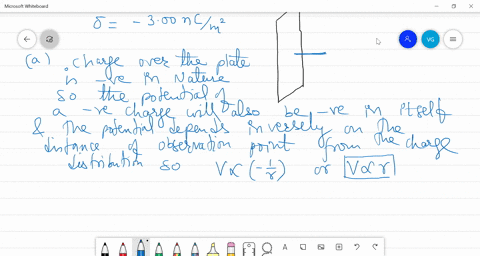 Microsoft Whiteboard
δ = - 3.00 nC/m²
VG
(a) charge over the plate
is -ve in Nature
so the potential of
a -ve charge will also be -ve in itself
& the potential depends inversely on the
distance of observation point from the charge
distribution so V∝(-1/r) or V∝r